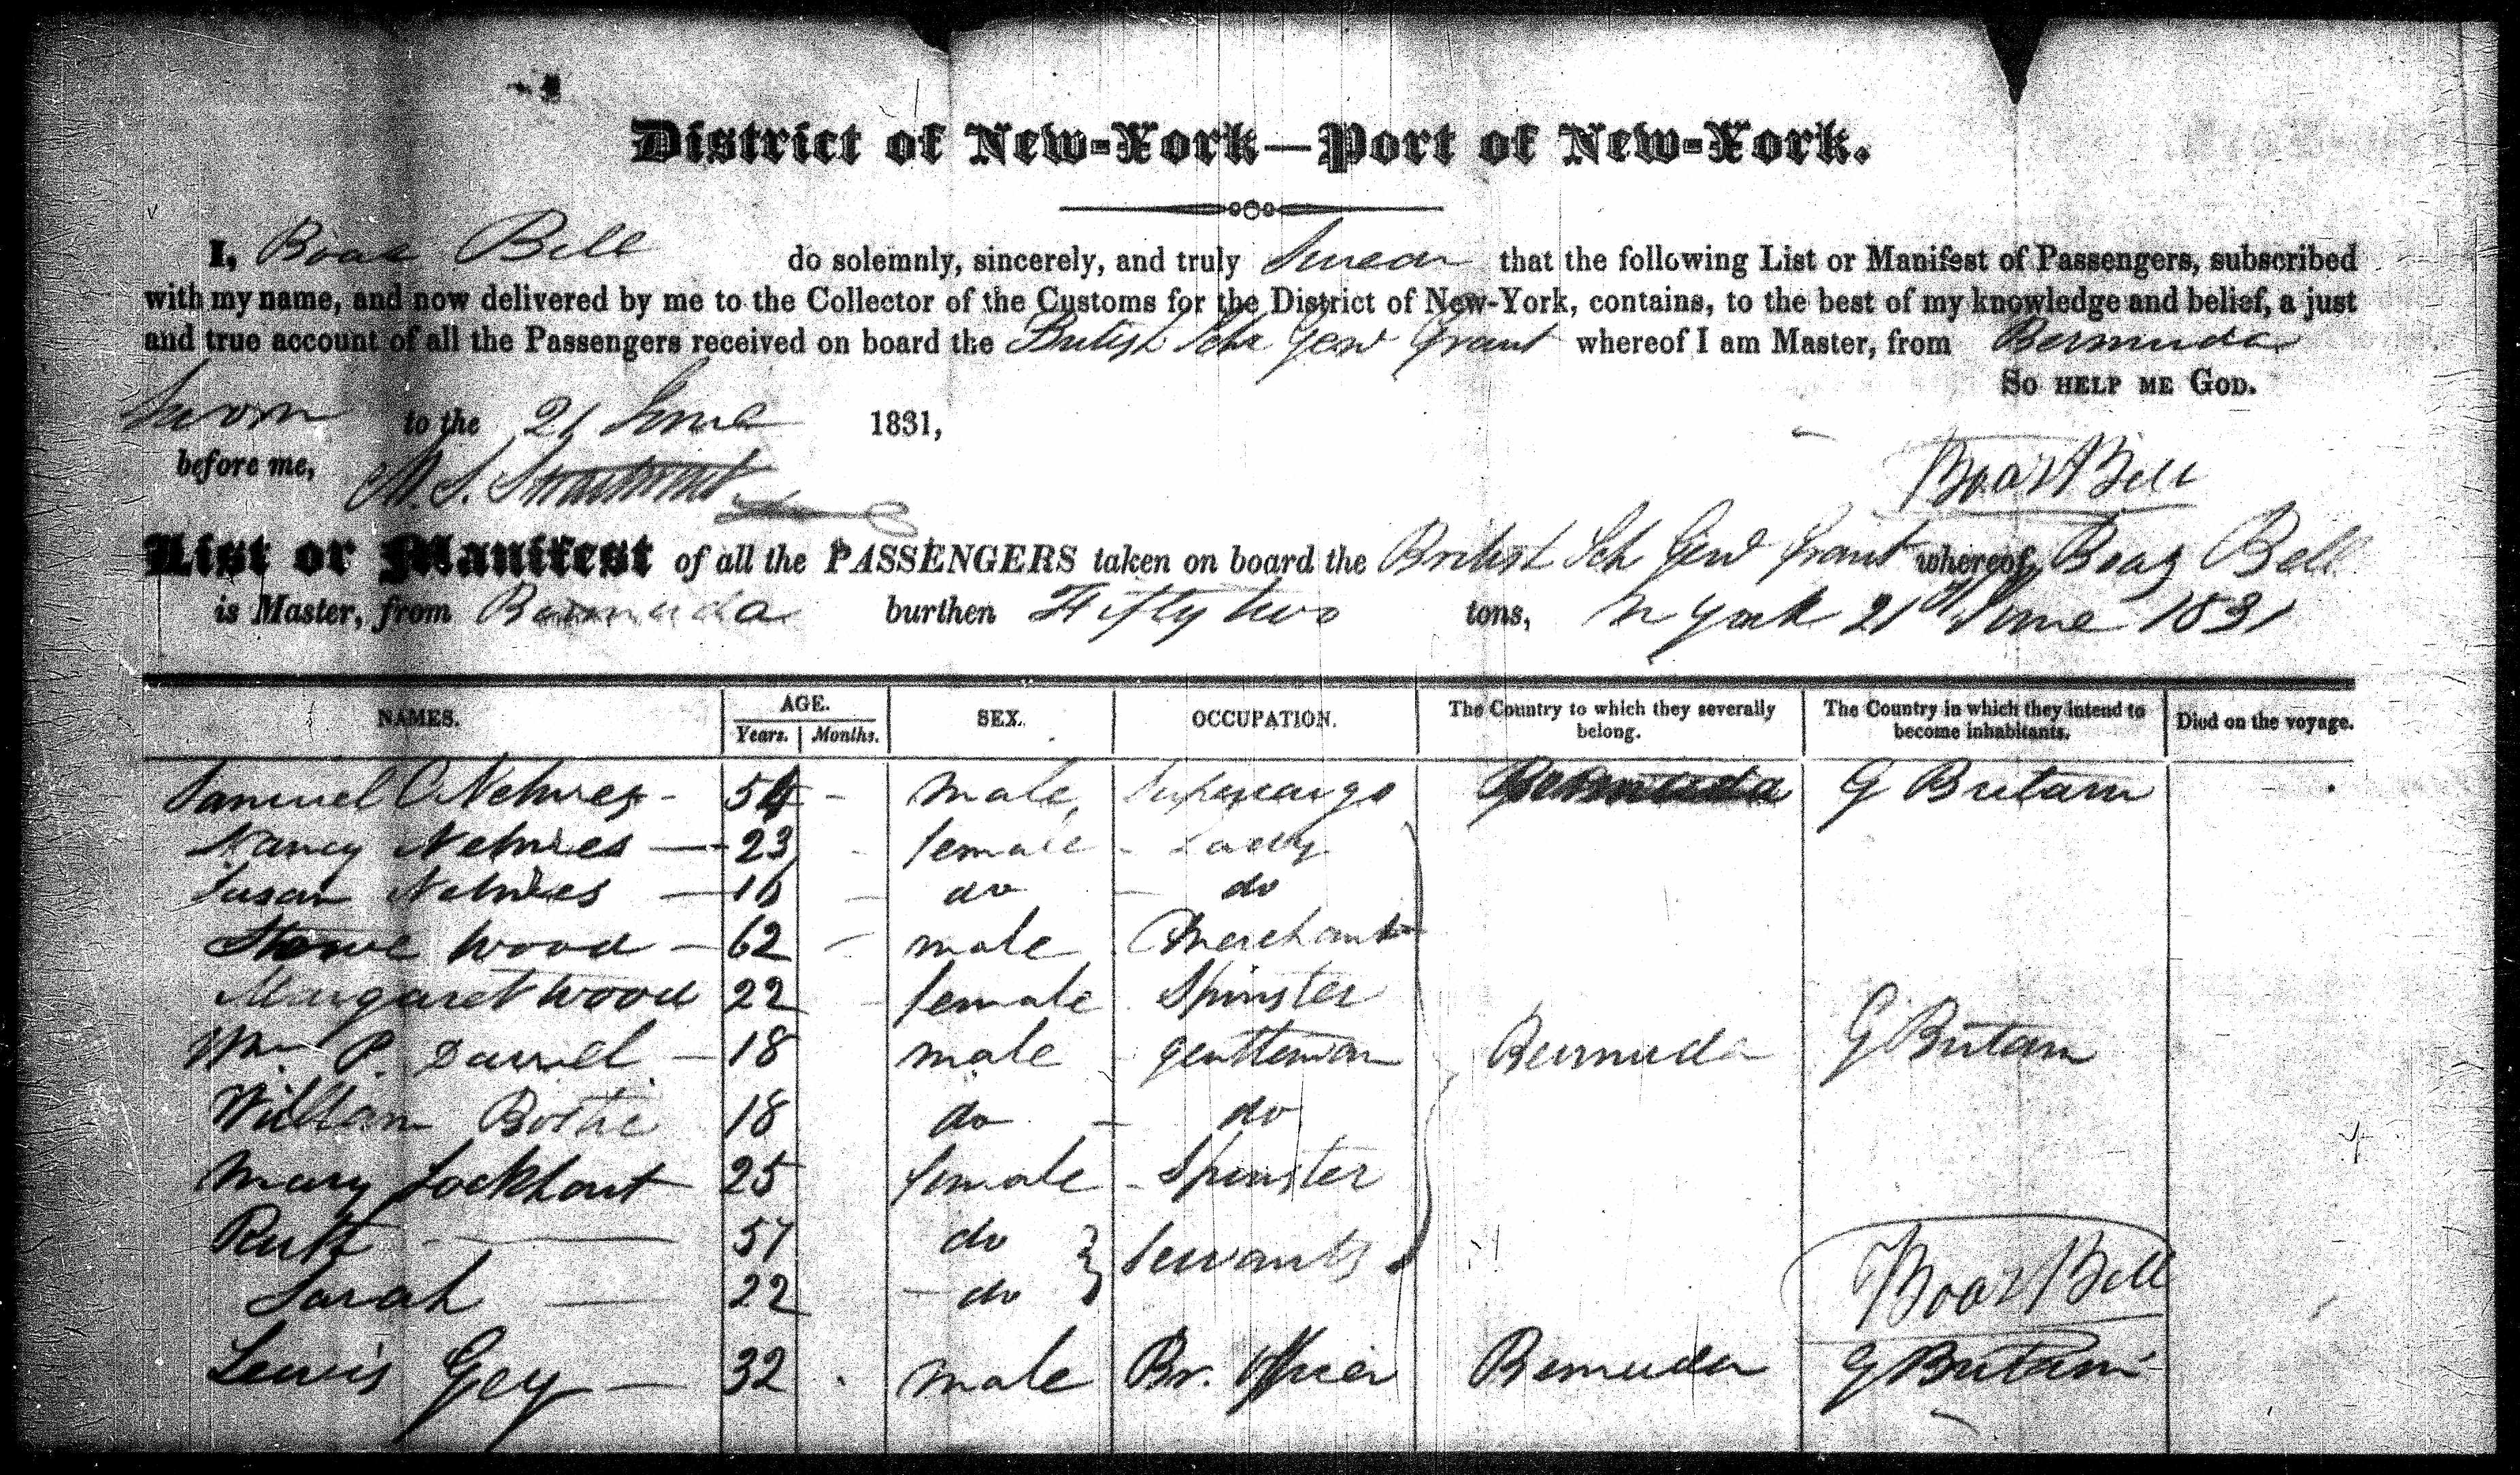 District of New-York—Port of New-York.
I, Boaz Bell do solemnly, sincerely, and truly Swear that the following List or Manifest of Passengers, subscribed
with my name, and now delivered by me to the Collector of the Customs for the District of New-York, contains, to the best of my knowledge and belief, a just
and true account of all the Passengers received on board the British Schr Genl Grant whereof I am Master, from Bermuda
So help me God.
Sworn to the 21 June 1831,
before me,
Boaz Bell
List or Manifest of all the PASSENGERS taken on board the British Sch Genl Grant whereof Boaz Bell
is Master, from Bermuda burthen Fifty two tons, N York 21st June 1831
NAMES. AGE. Years. Months. SEX. OCCUPATION. The Country to which they severally belong. The Country in which they intend to become inhabitants. Died on the voyage.
Samuel Nelmes - 54 - male Supercargo Bermuda G Britain
Nancy Nelmes - 23 female - Lady
Susan Nelmes - 16 - do - do
Stowe Wood - 62 - male Merchant
Margaret Wood 22 female Spinster
Wm P. Darrel - 18 male - gentleman Bermuda G Britain
William 18 do - do
Mary Lockhart 25 female - Spinster
Ruth - 57 do } Servants
Sarah - 22 - do
Boaz Bell
Lewis Gey - 32 male Br. Officer Bermuda G Britain